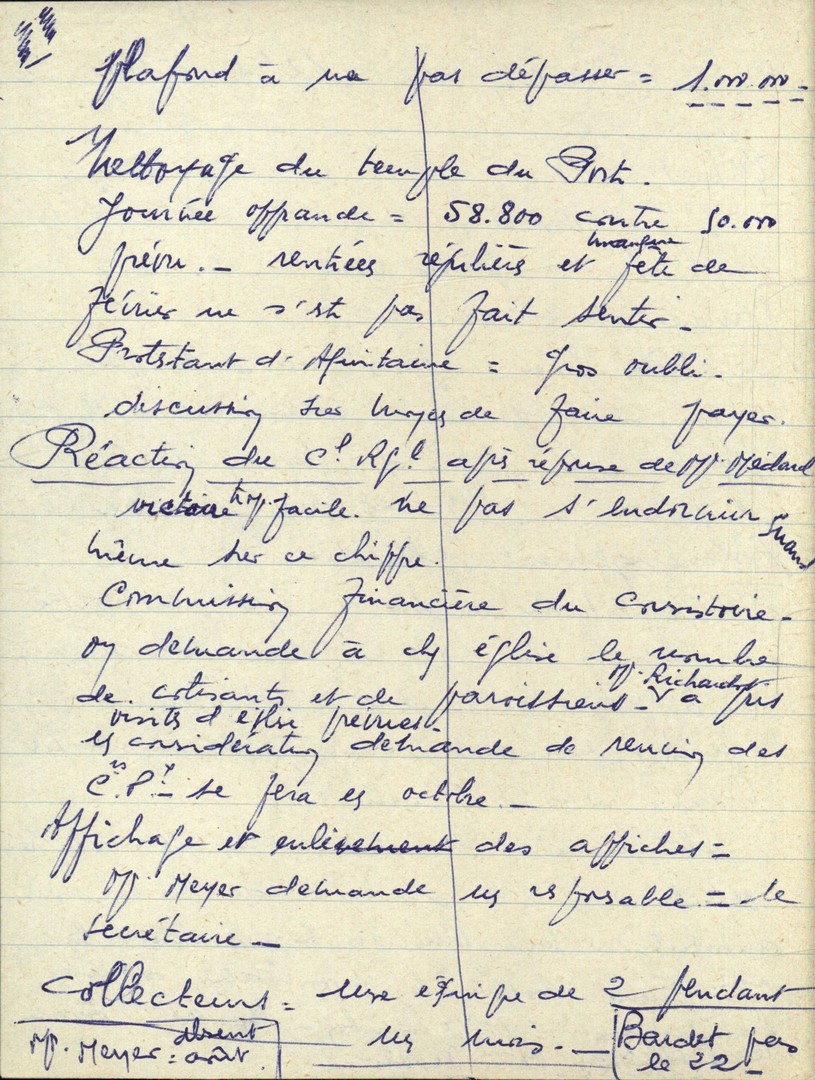 plafond à ne pas dépasser = 1.000.000-
Nettoyage du temple du Port.
Journée offrande = 58.800 contre 50.000
prévu. - rentrées régulières et fête de
manque
février ne s'est pas fait sentir -
Protestant d'Aquitaine = gros oubli -
discussion sur moyen de faire payer.
Réaction du Cl Rgl après réponse de Mr Médard
victoire trop facile. ne pas s'endormir quand
même sur ce chiffre.
Commission financière du consistoire -
on demande à ch église le nombre
de cotisants et de paroissiens - Mr Richardot a pris
visites d'église prévues -
en considération demande de réunion des
Crs. Px - se fera en octobre. -
Affichage et enlèvement des affiches =
Mr Meyer demande un responsable = le
secrétaire -
Collecteurs = une équipe de 2 pendant
un mois. -
Mr. Meyer = absent août.
Bardet pas
le 22 -